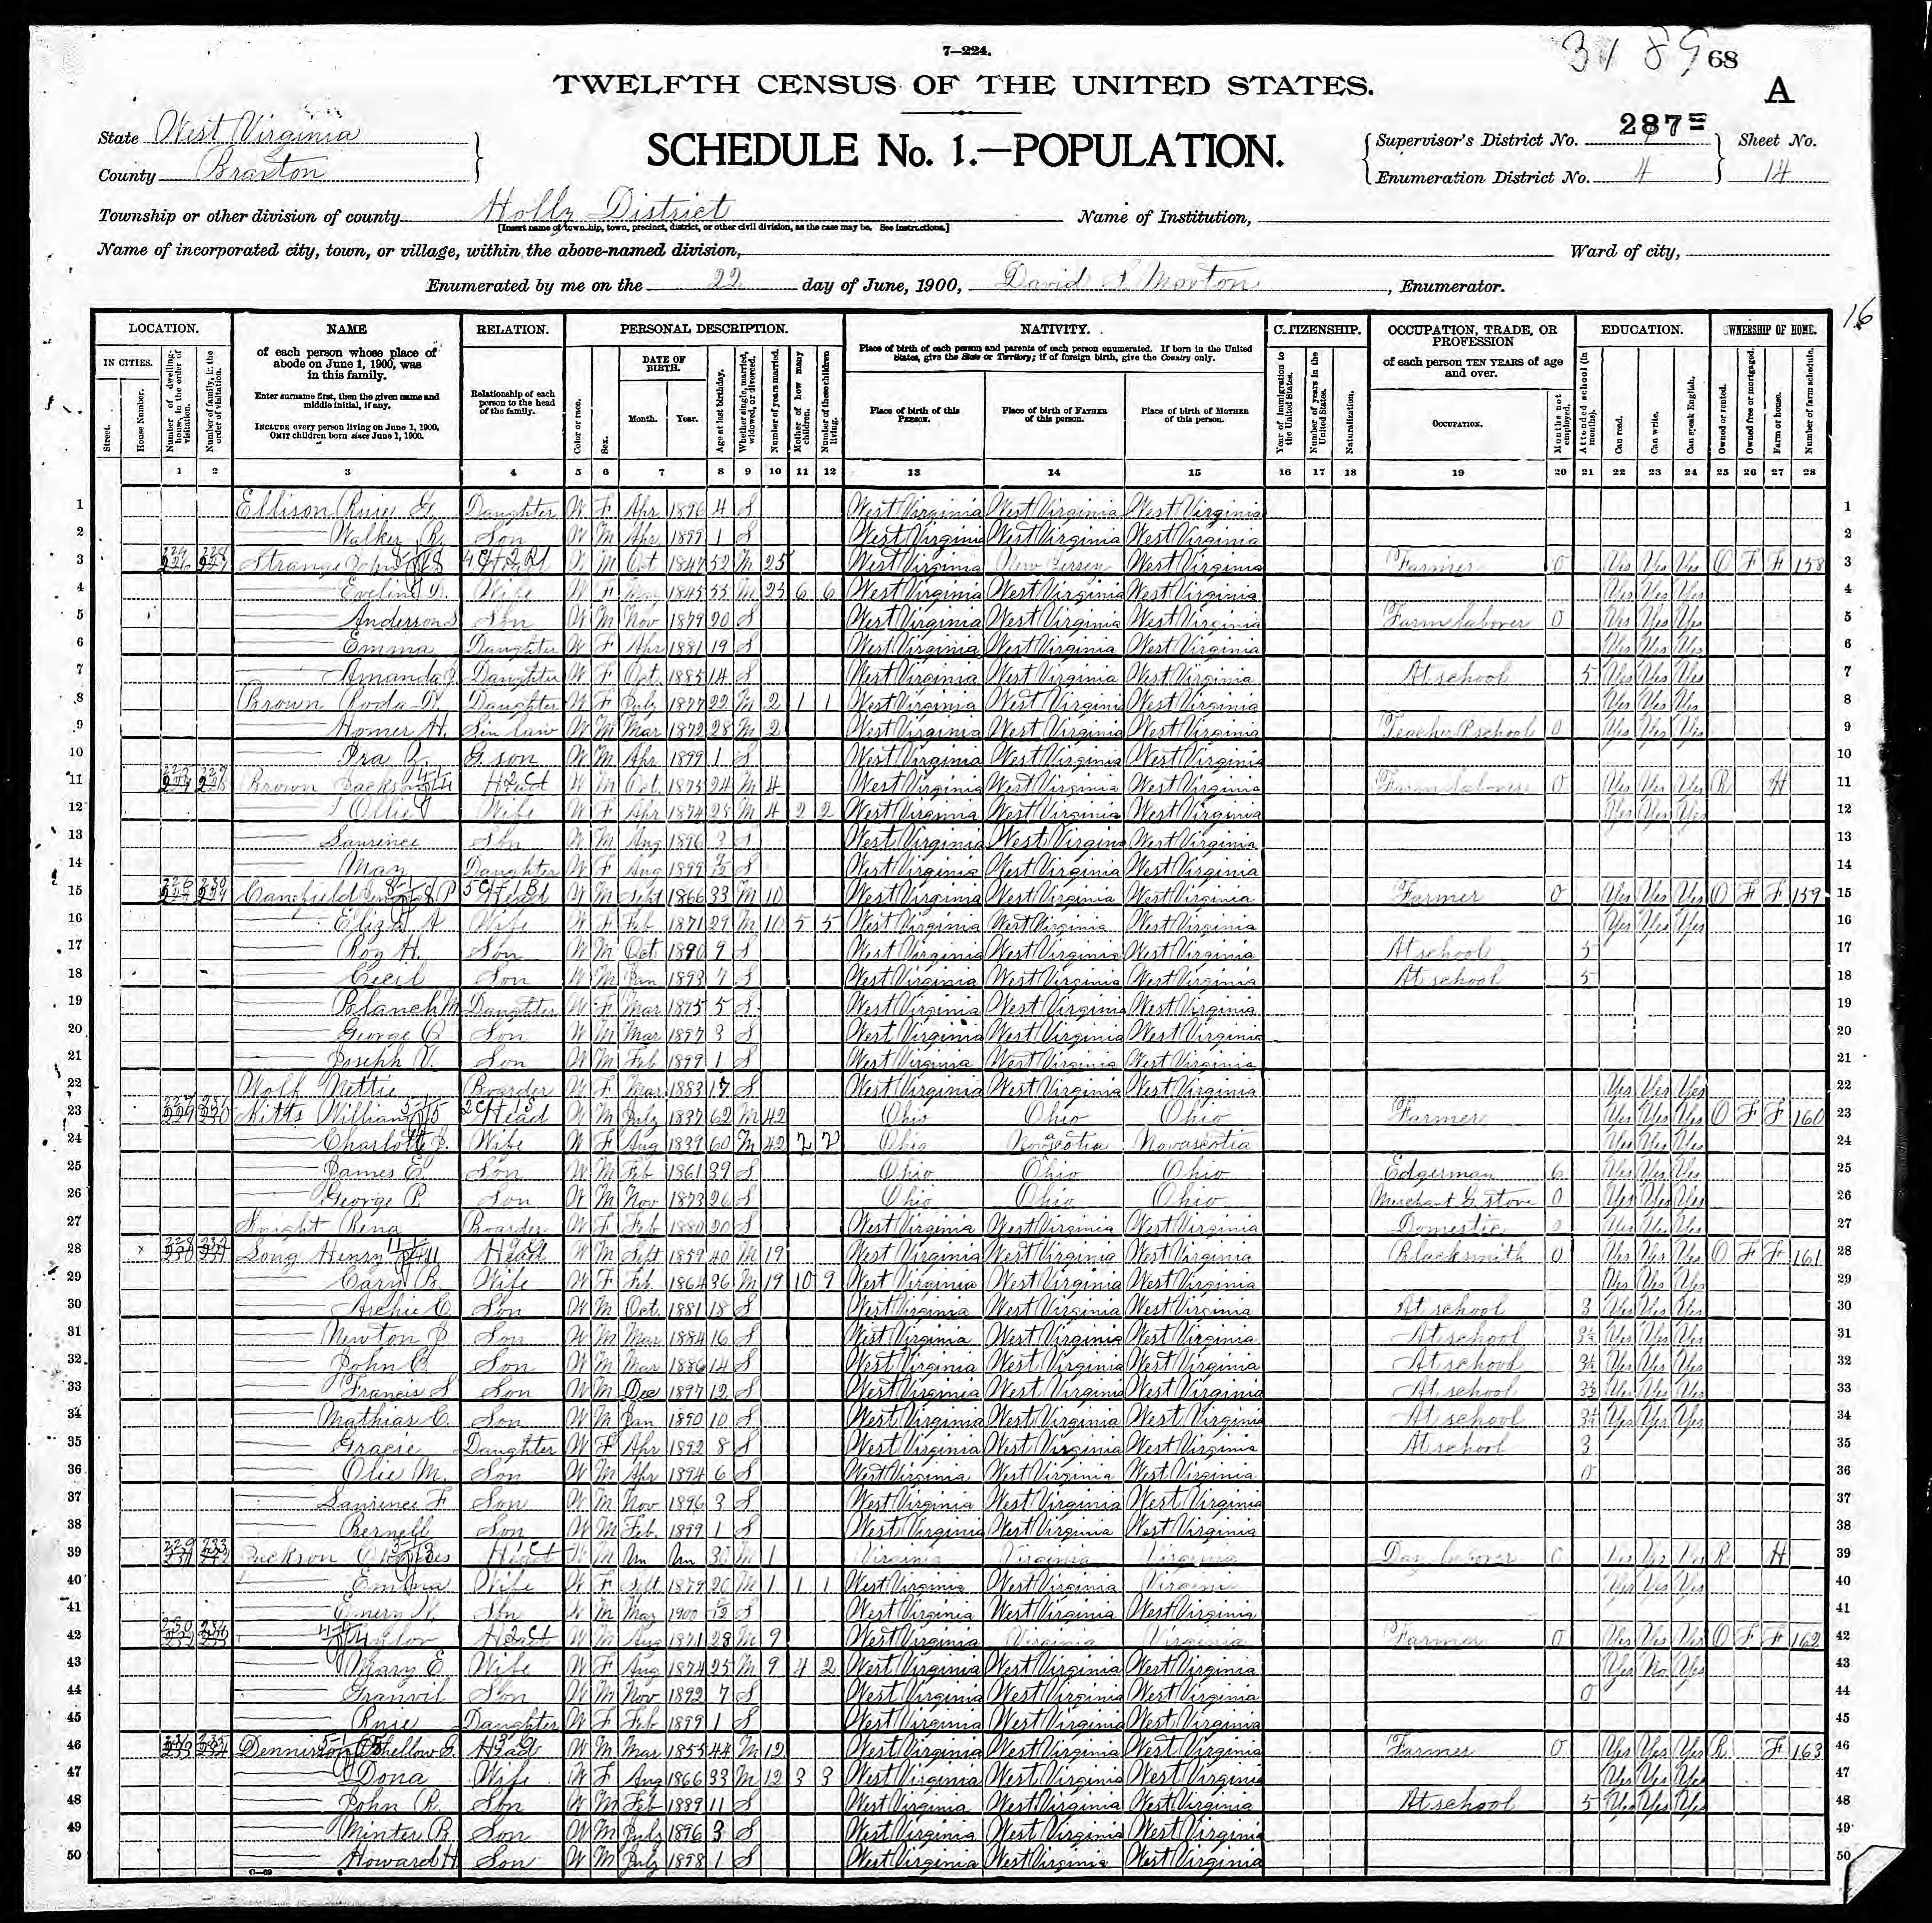 7—224.
3189 68
TWELFTH CENSUS OF THE UNITED STATES.
A
State West Virginia
County Braxton
SCHEDULE No. 1.—POPULATION.
Supervisor's District No. 287=
Enumeration District No. 4
Sheet No. 14
Township or other division of county Holly District
[Insert name of township, town, precinct, district, or other civil division, as the case may be. See instructions.]
Name of Institution,
Name of incorporated city, town, or village, within the above-named division,
Ward of city,
Enumerated by me on the 22 day of June, 1900, David Morton, Enumerator.
16
LOCATION. NAME RELATION. PERSONAL DESCRIPTION. NATIVITY. CITIZENSHIP. OCCUPATION, TRADE, OR PROFESSION EDUCATION. OWNERSHIP OF HOME.
IN CITIES. Street. House Number. Number of dwelling-house, in the order of visitation. Number of family, in the order of visitation.
of each person whose place of abode on June 1, 1900, was in this family.
Enter surname first, then the given name and middle initial, if any.
INCLUDE every person living on June 1, 1900. OMIT children born since June 1, 1900.
Relationship of each person to the head of the family.
Color or race. Sex. DATE OF BIRTH. Month. Year. Age at last birthday. Whether single, married, widowed, or divorced. Number of years married. Mother of how many children. Number of these children living.
Place of birth of each person and parents of each person enumerated. If born in the United States, give the State or Territory; if of foreign birth, give the Country only.
Place of birth of this PERSON. Place of birth of FATHER of this person. Place of birth of MOTHER of this person.
Year of immigration to the United States. Number of years in the United States. Naturalization.
of each person TEN YEARS of age and over.
OCCUPATION. Months not employed. Attended school (in months). Can read. Can write. Can speak English. Owned or rented. Owned free or mortgaged. Farm or house. Number of farm schedule.
1 2 3 4 5 6 7 8 9 10 11 12 13 14 15 16 17 18 19 20 21 22 23 24 25 26 27 28
1 Ellison G. Daughter W F Apr 1896 4 S West Virginia West Virginia West Virginia 1
2 Walker R. Son W M Apr 1899 1 S West Virginia West Virginia West Virginia 2
3 Strange John Head W M Oct 1847 52 M 25 West Virginia New Jersey West Virginia Farmer 0 Yes Yes Yes O F F 158 3
4 Eveline D. Wife W F May 1845 55 M 25 6 6 West Virginia West Virginia West Virginia Yes Yes Yes 4
5 Anderson S Son W M Nov 1879 20 S West Virginia West Virginia West Virginia Farm laborer 0 Yes Yes Yes 5
6 Emma Daughter W F Apr 1881 19 S West Virginia West Virginia West Virginia Yes Yes Yes 6
7 Amanda J. Daughter W F Oct. 1885 14 S West Virginia West Virginia West Virginia At school 5 Yes Yes Yes 7
8 Brown Roda D. Daughter W F July 1877 22 M 2 1 1 West Virginia West Virginia West Virginia Yes Yes Yes 8
9 Homer H. Sin law W M Mar 1872 28 M 2 West Virginia West Virginia West Virginia Teacher P school 0 Yes Yes Yes 9
10 Ira G. son W M Apr 1899 1 S West Virginia West Virginia West Virginia 10
11 Brown Jackson Head W M Oct. 1875 24 M 4 West Virginia West Virginia West Virginia Farm laborer 0 Yes Yes Yes R H 11
12 Ollie Wife W F Apr 1874 25 M 4 2 2 West Virginia West Virginia West Virginia Yes Yes Yes 12
13 Laurence Son W M Aug 1896 3 S West Virginia West Virginia West Virginia 13
14 May Daughter W F Aug 1899 S West Virginia West Virginia West Virginia 14
15 Canfield P Head W M Sept 1866 33 M 10 West Virginia West Virginia West Virginia Farmer 0 Yes Yes Yes O F F 159 15
16 Eliza A Wife W F Feb 1871 29 M 10 5 5 West Virginia West Virginia West Virginia Yes Yes Yes 16
17 Roy H. Son W M Oct 1890 9 S West Virginia West Virginia West Virginia At school 5 17
18 Cecil Son W M Jan 1893 7 S West Virginia West Virginia West Virginia At school 5 18
19 Blanch M Daughter W F Mar 1895 5 S West Virginia West Virginia West Virginia 19
20 George Son W M Mar 1897 3 S West Virginia West Virginia West Virginia 20
21 Joseph V. Son W M Feb 1899 1 S West Virginia West Virginia West Virginia 21
22 Wolf Nettie Boarder W F Mar 1883 17 S West Virginia West Virginia West Virginia Yes Yes Yes 22
23 Mitts William Head W M July 1837 62 M 42 Ohio Ohio Ohio Farmer Yes Yes Yes O F F 160 23
24 Charlotte J. Wife W F Aug 1839 60 M 42 7 7 Ohio Novascotia Novascotia Yes Yes Yes 24
25 James E Son W M Feb 1861 39 S Ohio Ohio Ohio Edgerman 6 Yes Yes Yes 25
26 George P. Son W M Nov 1873 26 S Ohio Ohio Ohio Merchant G. Store 0 Yes Yes Yes 26
27 Knight Rena Boarder W F Feb 1880 20 S West Virginia West Virginia West Virginia Domestic 0 Yes Yes Yes 27
28 Long Henry Head W M Sept 1859 40 M 19 West Virginia West Virginia West Virginia Blacksmith 0 Yes Yes Yes O F F 161 28
29 Cary B. Wife W F Feb. 1864 36 M 19 10 9 West Virginia West Virginia West Virginia Yes Yes Yes 29
30 Archie C. Son W M Oct. 1881 18 S West Virginia West Virginia West Virginia At school 3 Yes Yes Yes 30
31 Newton J Son W M Mar 1884 16 S West Virginia West Virginia West Virginia At school 3½ Yes Yes Yes 31
32 John C. Son W M Mar 1886 14 S West Virginia West Virginia West Virginia At school 3½ Yes Yes Yes 32
33 Francis S Son W M Dec 1897 12 S West Virginia West Virginia West Virginia At school 3½ Yes Yes Yes 33
34 Mathias C. Son W M Jan 1890 10 S West Virginia West Virginia West Virginia At school 3½ Yes Yes Yes 34
35 Gracie Daughter W F Apr 1892 8 S West Virginia West Virginia West Virginia At school 3 35
36 Olie M. Son W M Apr 1894 6 S West Virginia West Virginia West Virginia 0 36
37 Laurence F Son W M Nov 1896 3 S West Virginia West Virginia West Virginia 37
38 Bernell Son W M Feb. 1899 1 S West Virginia West Virginia West Virginia 38
39 Jackson Head W M Un Un M 1 Virginia Virginia Virginia Day laborer Yes Yes Yes R H 39
40 Emma Wife W F Sept 1879 20 M 1 1 1 West Virginia West Virginia Virginia Yes Yes Yes 40
41 Emery Son W M Mar 1900 S West Virginia West Virginia West Virginia 41
42 Head W M Aug 1871 28 M 9 West Virginia Virginia Virginia Farmer 0 Yes Yes Yes O F F 162 42
43 Mary E. Wife W F Aug 1874 25 M 9 4 2 West Virginia West Virginia West Virginia Yes No Yes 43
44 Granvil Son W M Nov 1892 7 S West Virginia West Virginia West Virginia 0 44
45 Daughter W F Feb 1899 1 S West Virginia West Virginia West Virginia 45
46 Dennison Head W M Mar 1855 44 M 12 West Virginia West Virginia West Virginia Farmer 0 Yes Yes Yes R F 163 46
47 Dona Wife W F Aug 1866 33 M 12 3 3 West Virginia West Virginia West Virginia Yes Yes Yes 47
48 John R. Son W M Feb 1889 11 S West Virginia West Virginia West Virginia At school 5 Yes Yes Yes 48
49 Minter B. Son W M July 1896 3 S West Virginia West Virginia West Virginia 49
50 Howard H Son W M July 1898 1 S West Virginia West Virginia West Virginia 50